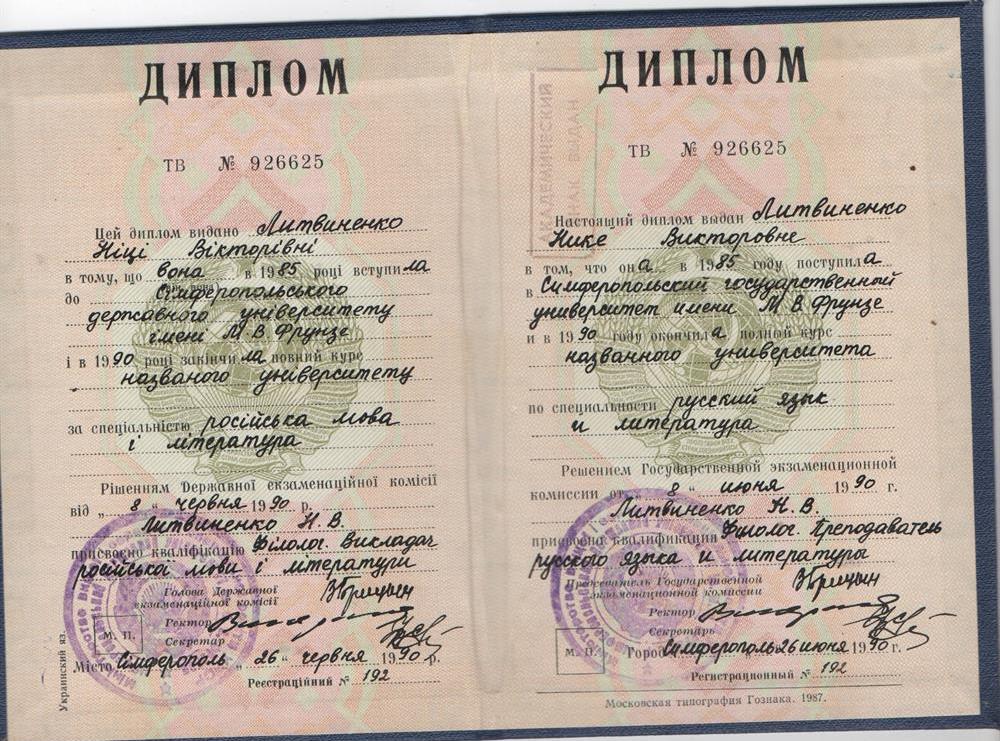 ДИПЛОМ
ТВ № 926625
Цей диплом видано Литвиненко
Ніці Вікторівні
в тому, що вона в 1985 році вступила
до Сімферопольського
державного університету
імені М. В. Фрунзе
і в 1990 році закінчила повний курс
названого університету
за спеціальністю російська мова
і література
Рішенням Державної екзаменаційної комісії
від „ 8 “ червня 1990 р.
Литвиненко Н. В.
присвоєно кваліфікацію Філолог. Викладач
російської мови і літератури
Голова Державної
екзаменаційної комісії
Ректор
Секретар
М. П.
Місто Сімферополь „ 26 “ червня 1990 р.
Реєстраційний № 192
Украинский яз.
ДИПЛОМ
АКАДЕМИЧЕСКИЙ
ЗНАК ВЫДАН
ТВ № 926625
Настоящий диплом выдан Литвиненко
Нике Викторовне
в том, что она в 1985 году поступила
в Симферопольский государственный
университет имени М. В. Фрунзе
и в 1990 году окончила полный курс
названного университета
по специальности русский язык
и литература
Решением Государственной экзаменационной
комиссии от „ 8 “ июня 1990 г.
Литвиненко Н. В.
присвоена квалификация Филолог. Преподаватель
русского языка и литературы
Председатель Государственной
экзаменационной комиссии
Ректор
Секретарь
М. П.
Город Симферополь 26 июня 1990 г.
Регистрационный № 192
Московская типография Гознака. 1987.